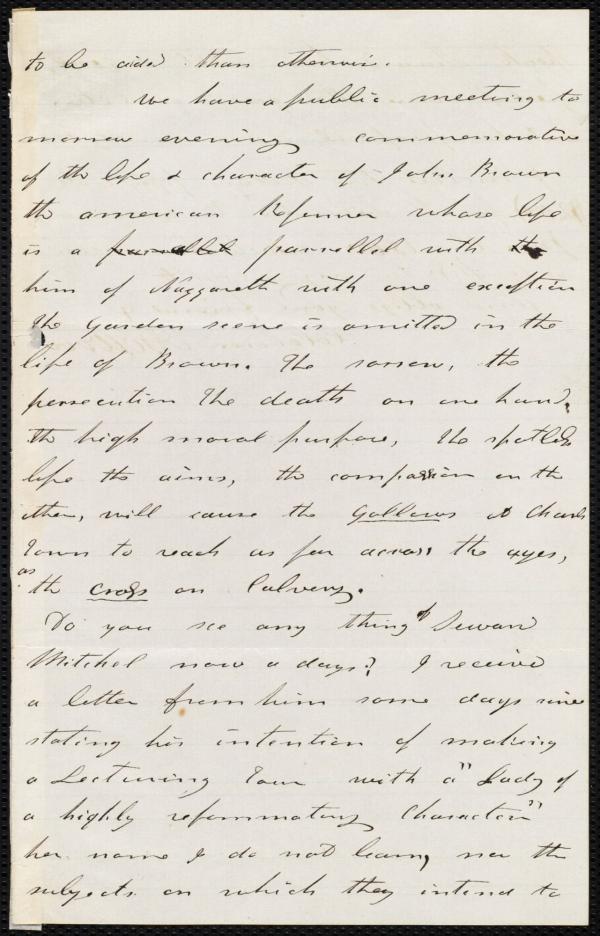 to be aided than otherwise.
We have a public meeting to
morrow evening commemorative
of the life & character of John Brown
the american Reformer whose life
is a parrellel parrellel with the
him of Nazzareth with one exception
the Garden scene is omitted in the
life of Brown. The sorrow, the
persecution the death on one hand,
the high moral purpose, the spotless
life the aims, the compassion on the
other, will cause the Gallows at Charls
town to reach as far across the ages,
as
the cross on Calvery.
Do you see any thing of Seward
Mitchel now a days? I receive
a letter from him some days since
stating his intention of making
a Lecturing Tour with a "Lady of
a highly reformmatory Character"
her name I do not learn, nor the
subjects on which they intend to